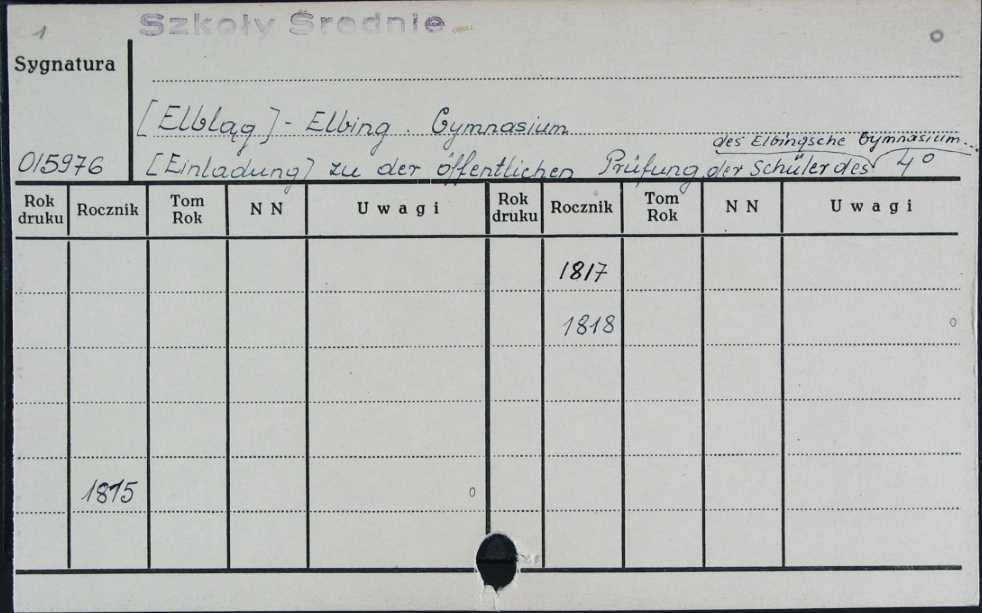 1
Szkoły Średnie
Sygnatura
[Elbląg] - Elbing. Gymnasium
des Elbingsche Gymnasium...
015976 [Einladung] zu der öffentlichen Prüfung der Schüler des 4°
Rok druku Rocznik Tom Rok N N Uwagi Rok druku Rocznik Tom Rok N N Uwagi
1817
1818 o
1815 o